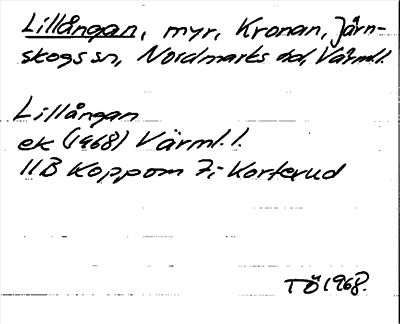 Lillången, myr, Kronan, Järn-
skogs sn, Nordmarks hd, Värml.l.
Lillången
ek (1968) Värml.l.
11B Koppom 7i Korterud
TÖ 1968.